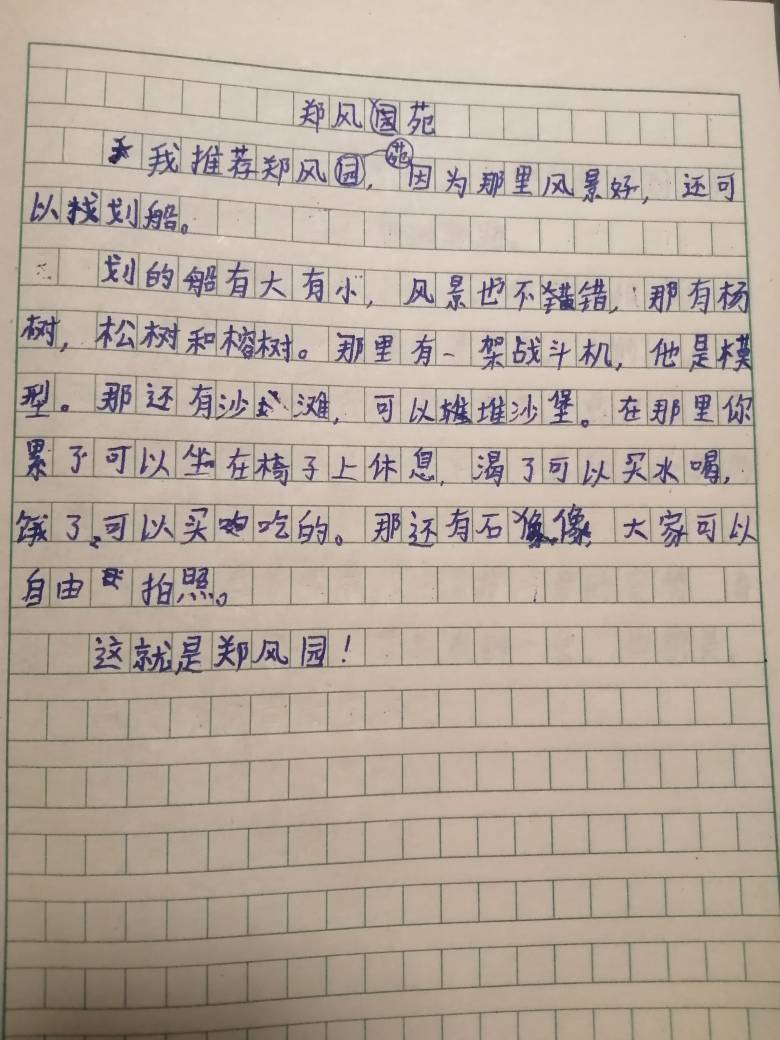 郑风苑
我推荐郑风苑，因为那里风景好，还可
以划船。
划的船有大有小，风景也不错，那有杨
树，松树和榕树。那里有一架战斗机，他是模
型。那还有沙滩，可以堆沙堡。在那里你
累了可以坐在椅子上休息，渴了可以买水喝，
饿了可以买吃的。那还有石像，大家可以
自由拍照。
这就是郑风园！